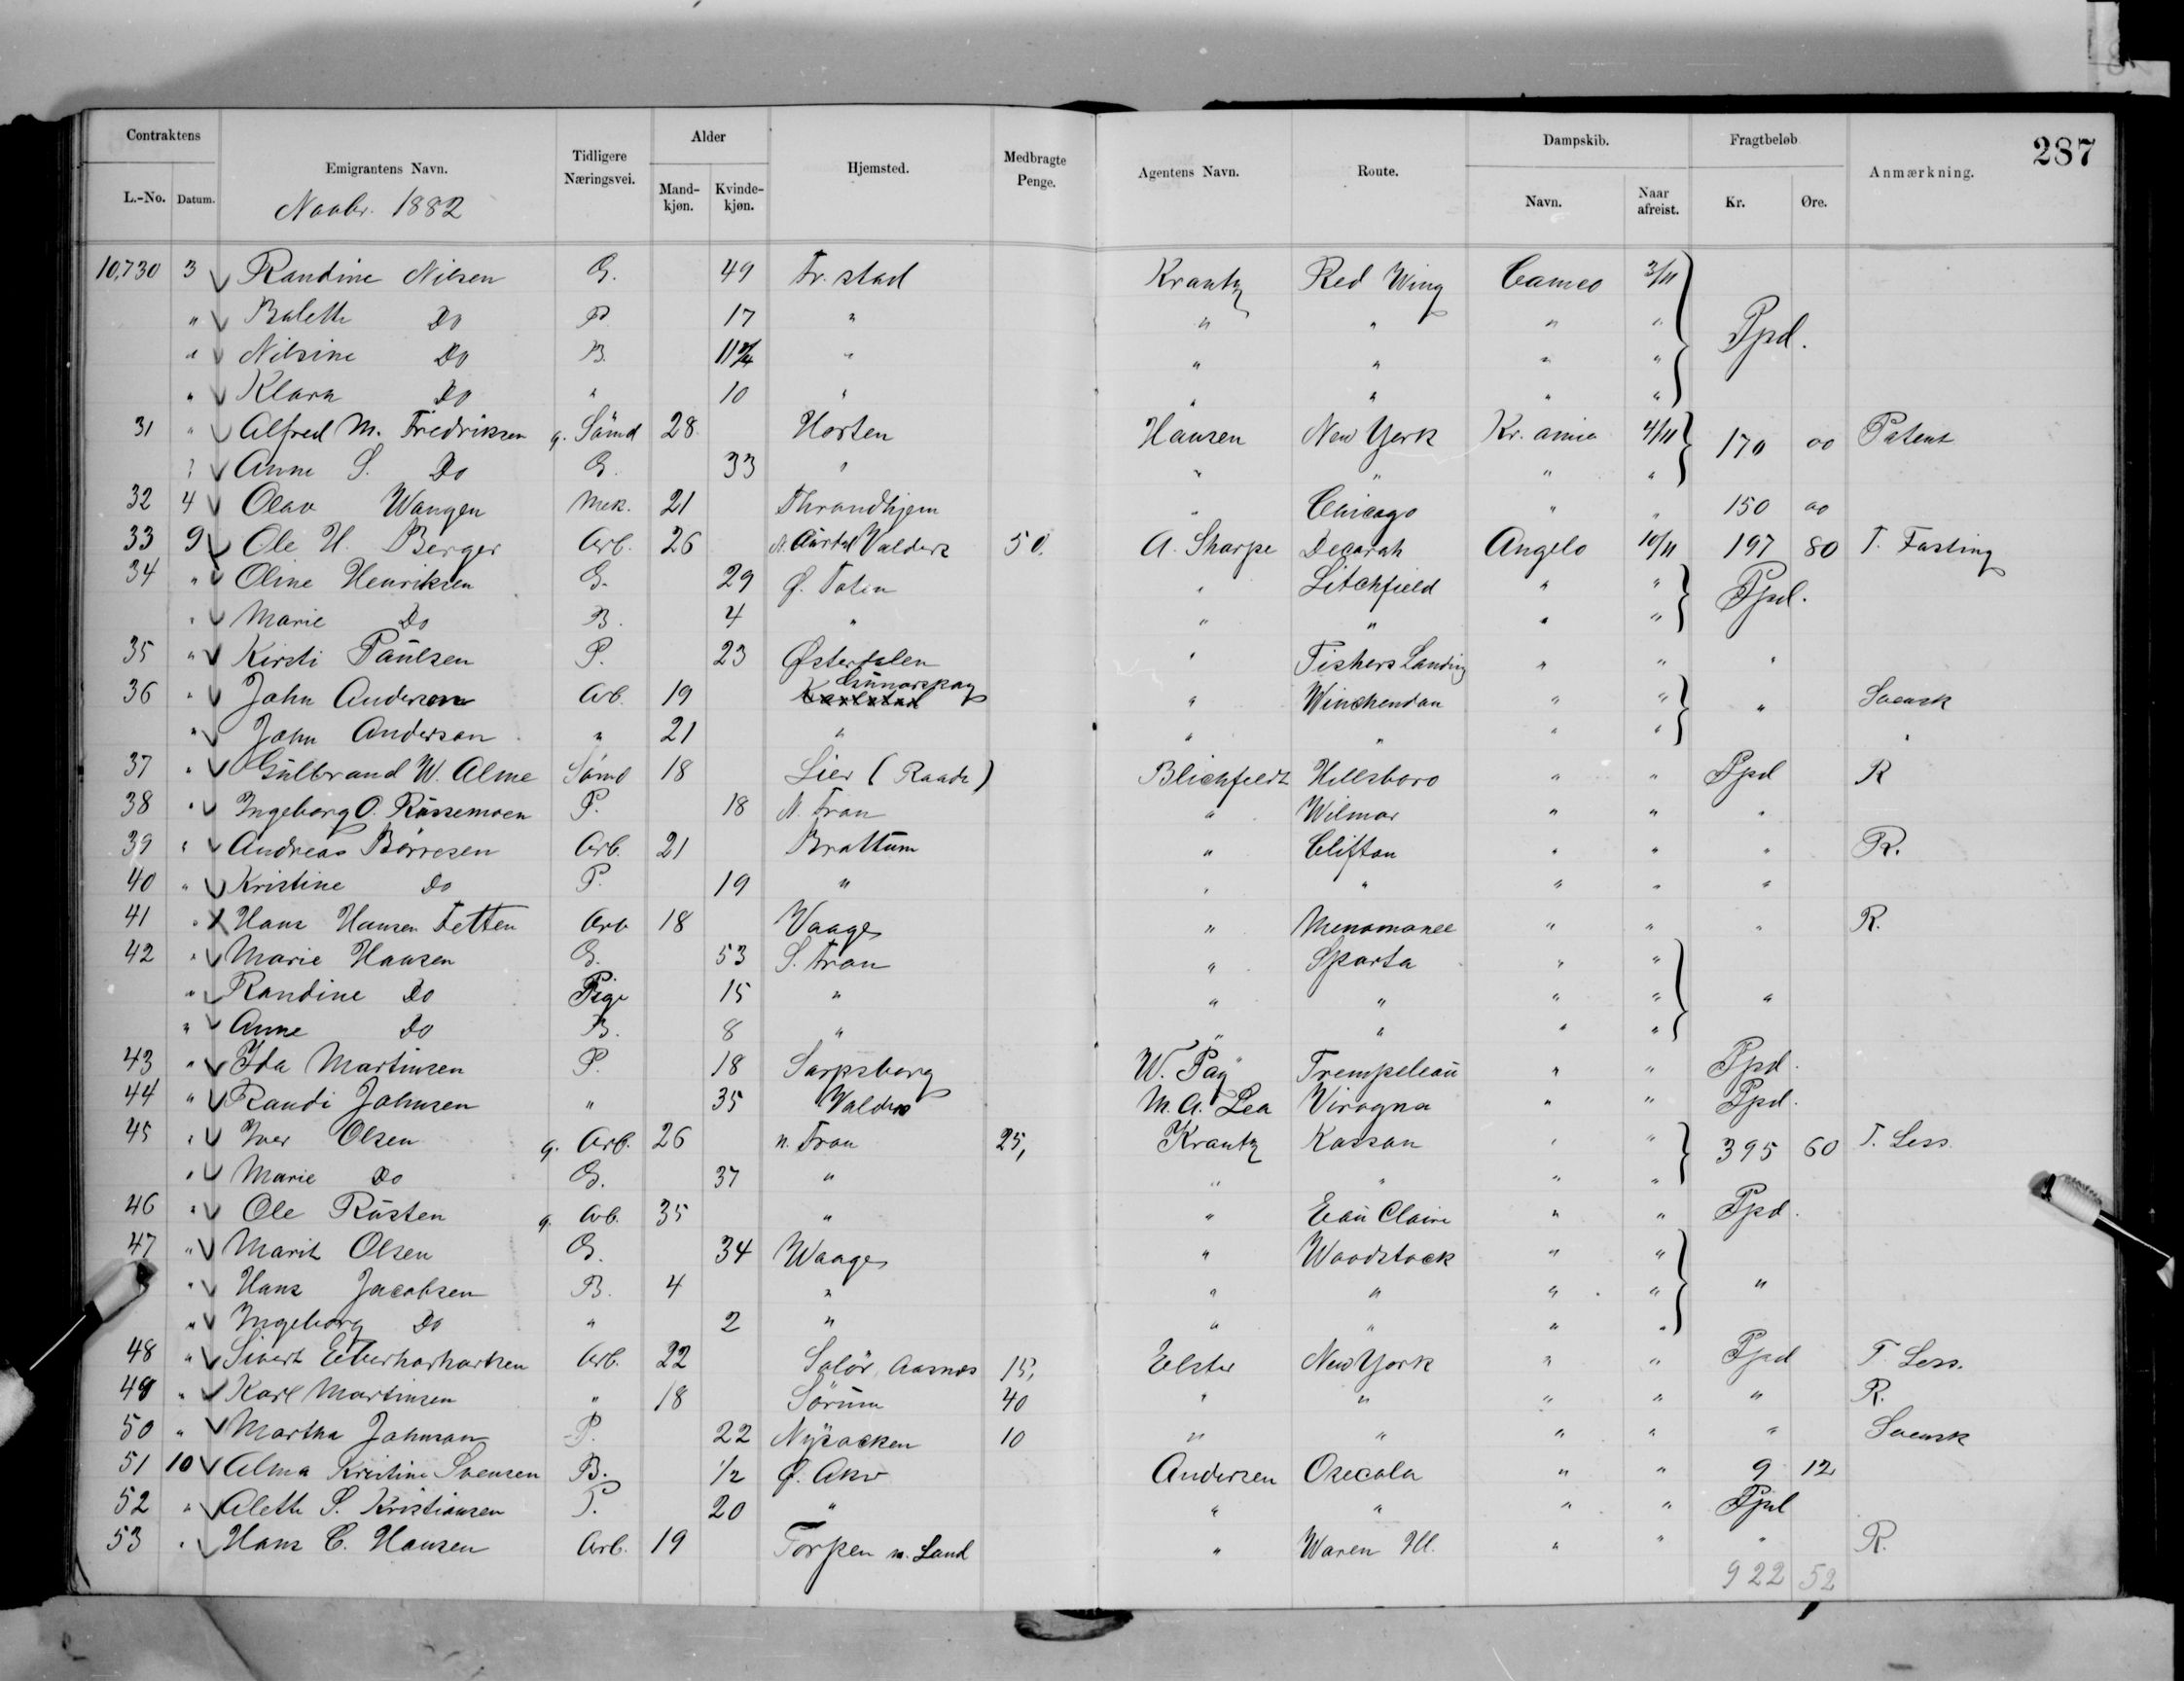 287
Contraktens Emigrantens Navn. Tidligere Næringsvei. Alder Hjemsted. Medbragte Penge. Agentens Navn. Route. Dampskib. Fragtbeløb Anmærkning.
L.-No. Datum. Novbr. 1882 Mand-kjøn. Kvinde-kjøn. Navn. Naar afreist. Kr. Øre.
10,730 3 Randine Nilsen G. 49 Fr. stad Krantz Red Wing Cameo 3/11
" Bolette Do P. 17 " " " " " Ppd.
" Nilsine Do B. " " " " "
" Klara Do " 10 " " " " "
31 " Alfred M. Fredriksen g. Sömd 28 Horten Hansen New York Kr. ania 4/11 170 00 Patent
" Anne S. Do G. 33 " " " " "
32 4 Olav Wangen Mek. 21 Thrandhjem " Chicago " " 150 00
33 9 Ole H. Berger Arb. 26 N. Aurdal Valders 50. A. Sharpe Decorah Angelo 10/11 197 80 T. Fasting
34 " Oline Henriksen G. 29 Ø. Toten " Litchfield " " Ppd.
" Marie Do B. 4 " " " " "
35 " Kirsti Paulsen P. 23 Østerdalen " Fishers Landing " " "
36 " John Anderson Arb. 19 Gunarskog " Winchendon " " " Svensk
" John Anderson " 21 " " " " " "
37 " Gulbrand W. Alme Sömd 18 Lier (Raade) Blichfeldt Hillsboro " " Ppd R
38 " Ingeborg O. Rossemoen P. 18 N. Fron " Wilmar " " "
39 " Andreas Börresen Arb. 21 Brottum " Clifton " " " R.
40 " Kristine Do P. 19 " " " " " "
41 " Hans Hansen Tetten Arb 18 Vaage " Menomonee " " " R.
42 " Marie Hansen G. 53 S. Fron " Sparta " "
" Randine Do Pige 15 " " " " " "
" Anne Do B. 8 " " " " "
43 " Ida Martinsen P. 18 Sarpsborg W. Pay Trempeleau " " Ppd.
44 " Randi Johnsen " 35 Valders M. A. Lea Viroqna " " Ppd.
45 " Iver Olsen g. Arb. 26 n. Fron 25, Krantz Kasson " " 395 60 T. Less
" Marie Do G. 37 " " " " "
46 " Ole Rusten g. Arb. 35 " " Eau Claire " " Ppd.
47 " Marit Olsen G. 34 Waage " Woodstock " "
" Hans Jacobsen B. 4 " " " " " "
" Ingeborg Do " 2 " " " " "
48 " Sivert Arb. 22 Solör, Aasnes 15, Elster New York " " Ppd T. Less.
49 " Karl Martinsen " 18 Sörum 40 " " " " " R.
50 " Martha Johnson P. 22 Nysocken 10 " " " " " Svensk
51 10 Alma Kristine Svensen B. 1/2 Ø. Aker Andersen Osecola " " 9 12
52 " Alette S. Kristiansen P. 20 " " " " " Ppd
53 " Hans C. Hansen Arb. 19 Torpen n. Land " Waren Ill. " " " R.
922 52